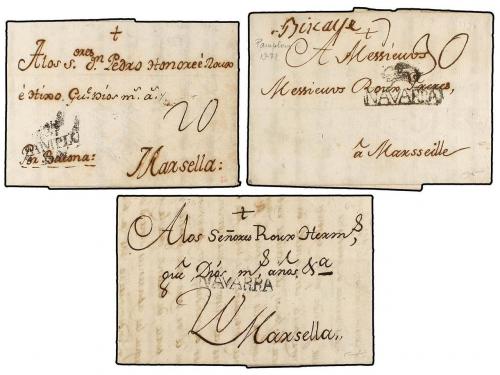 A los S.res D.n Pedro Honoré é Roux
é Hixo. Gu.e Dios m.s a.s
20
PAMPLO
Por Baiona:
Marsella:
Pamplona
A Messieurs
30
Messieurs Roux Freres,
NAVARRA
à Marsseille
A los Señores Roux Herm.s,
que Dios m.s años &a
NAVARRA
Marsella,,